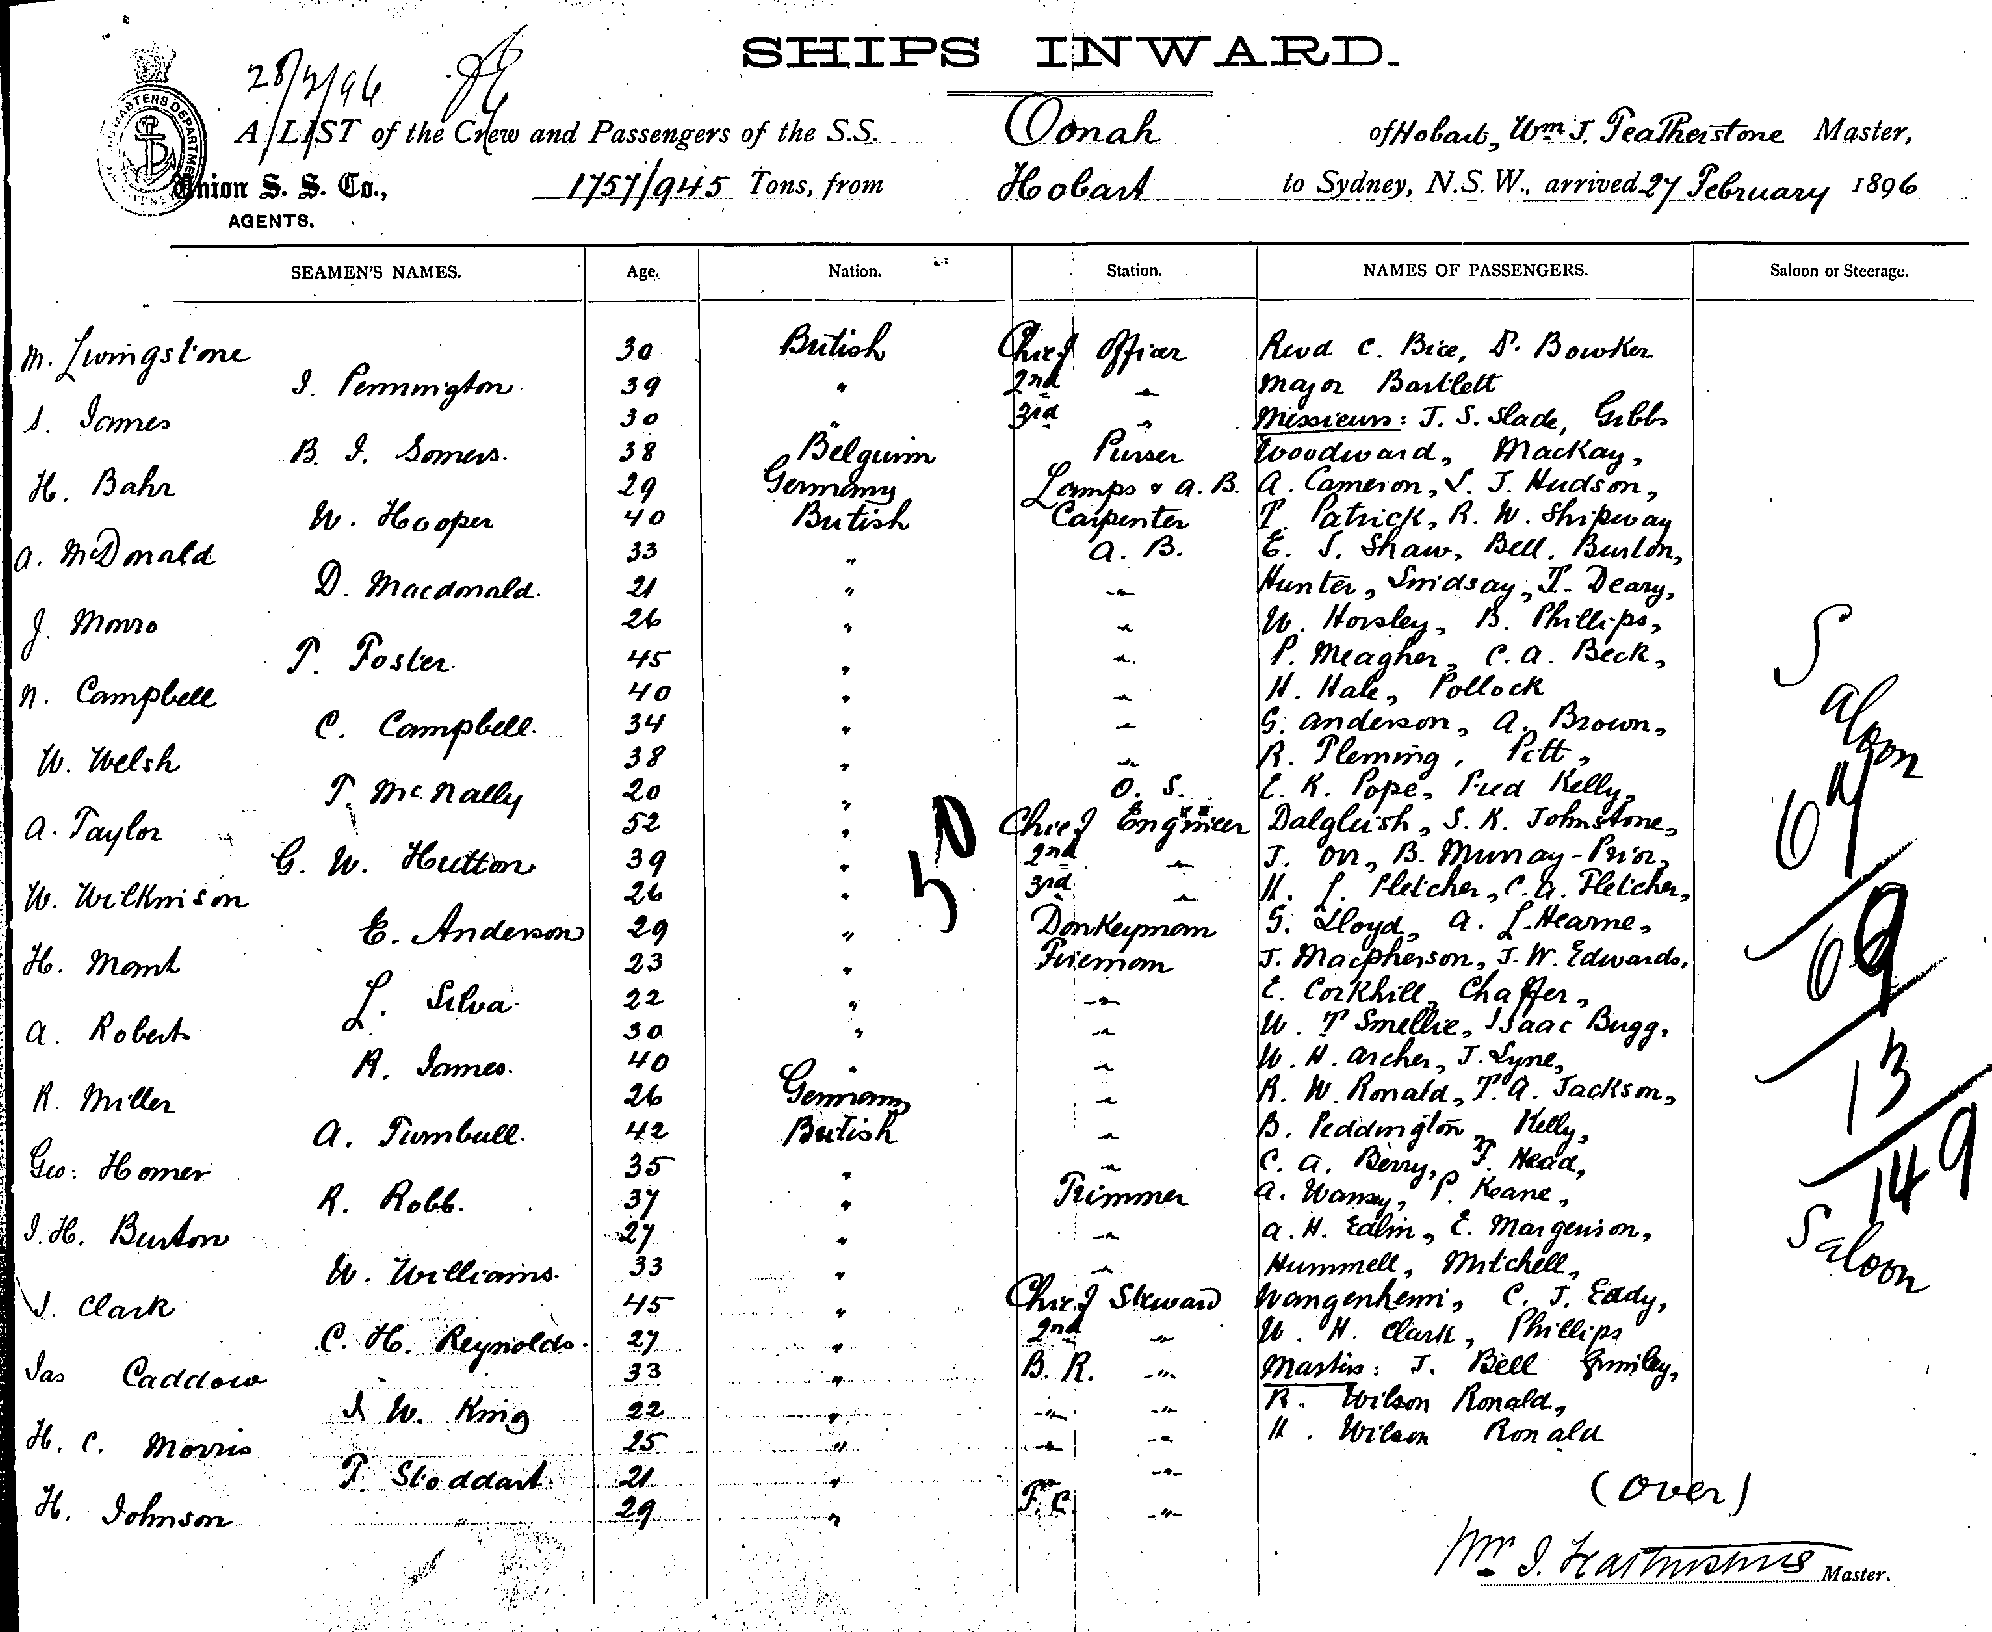 SHIPS INWARD.
28/2/96
A LIST of the Crew and Passengers of the S.S. Oonah of Hobart, Wm J. Featherstone Master,
Union S. S. Co., 1757/945 Tons, from Hobart to Sydney, N.S.W., arrived 27 February 1896
AGENTS.
SEAMEN'S NAMES. Age. Nation. Station. NAMES OF PASSENGERS. Saloon or Steerage.
M. Livingstone 30 British Chief Officer Revd C. Bice, P. Bowker
J. Pennington 39 " 2nd " Major Bartlett
S. James 30 " 3rd " Messieurs: J. S. Slade, Gibbs
B. J. Somers 38 Belguim Purser Woodward, Mackay,
H. Bahr 29 Germany Lamps & A. B. A. Cameron, L. J. Hudson,
W. Hooper 40 British Carpenter T. Patrick, R. W. Shipway
A. McDonald 33 " A. B. E. S. Shaw, Bell, Burton,
D. Macdonald 21 " " Hunter, Lindsay, T. Deary,
J. Monro 26 " " W. Horsley, B. Phillips,
T. Foster 45 " " P. Meagher, C. A. Beck,
N. Campbell 40 " " H. Hale, Pollock
C. Campbell 34 " " G. Anderson, A. Brown,
W. Welsh 38 " " R. Fleming, Pitt,
T. McNally 20 " O. S. E. K. Pope, Fred Kelly,
A. Taylor 52 " Chief Engineer Dalgleish, S. K. Johnstone,
G. W. Hutton 39 " 2nd " J. Orr, B. Murray-Prior,
W. Wilkinson 26 " 3rd " H. L. Fletcher, C. A. Fletcher,
E. Anderson 29 " Donkeyman G. Lloyd, A. L. Hearne,
H. Mant 23 " Fireman J. Macpherson, J. W. Edwards,
L. Silva 22 " " E. Corkhill, Chaffer,
A. Roberts 30 " " W. T Smellie, Isaac Bugg,
R. James 40 " " W. H. Archer, J. Lyne,
R. Miller 26 Germany " R. W. Ronald, T. A. Jackson,
A. Turnbull 42 British " B. Peddington, Kelly,
Geo: Homer 35 " " C. A. Berry, F. Head,
R. Robb 37 " Trimmer A. Wansey, P. Keane,
J. H. Burton 27 " " A. H. Edlin, E. Margenson,
W. Williams 33 " " Hummell, Mitchell,
J. Clark 45 " Chief Steward Wangenheim, C. J. Eddy,
C. H. Reynolds 27 " 2nd " W. H. Clark, Phillips
Jas Caddow 33 " B. R. " Masters: J. Bell
J W. King 22 " " " R. Wilson Ronald,
H. C. Morris 25 " " " H. Wilson Ronald
T. Stoddart 21 " "
H. Johnson 29 " F. C. "
50
Saloon
69
13
149
Saloon
(Over)
Wm J. Featherstone Master.